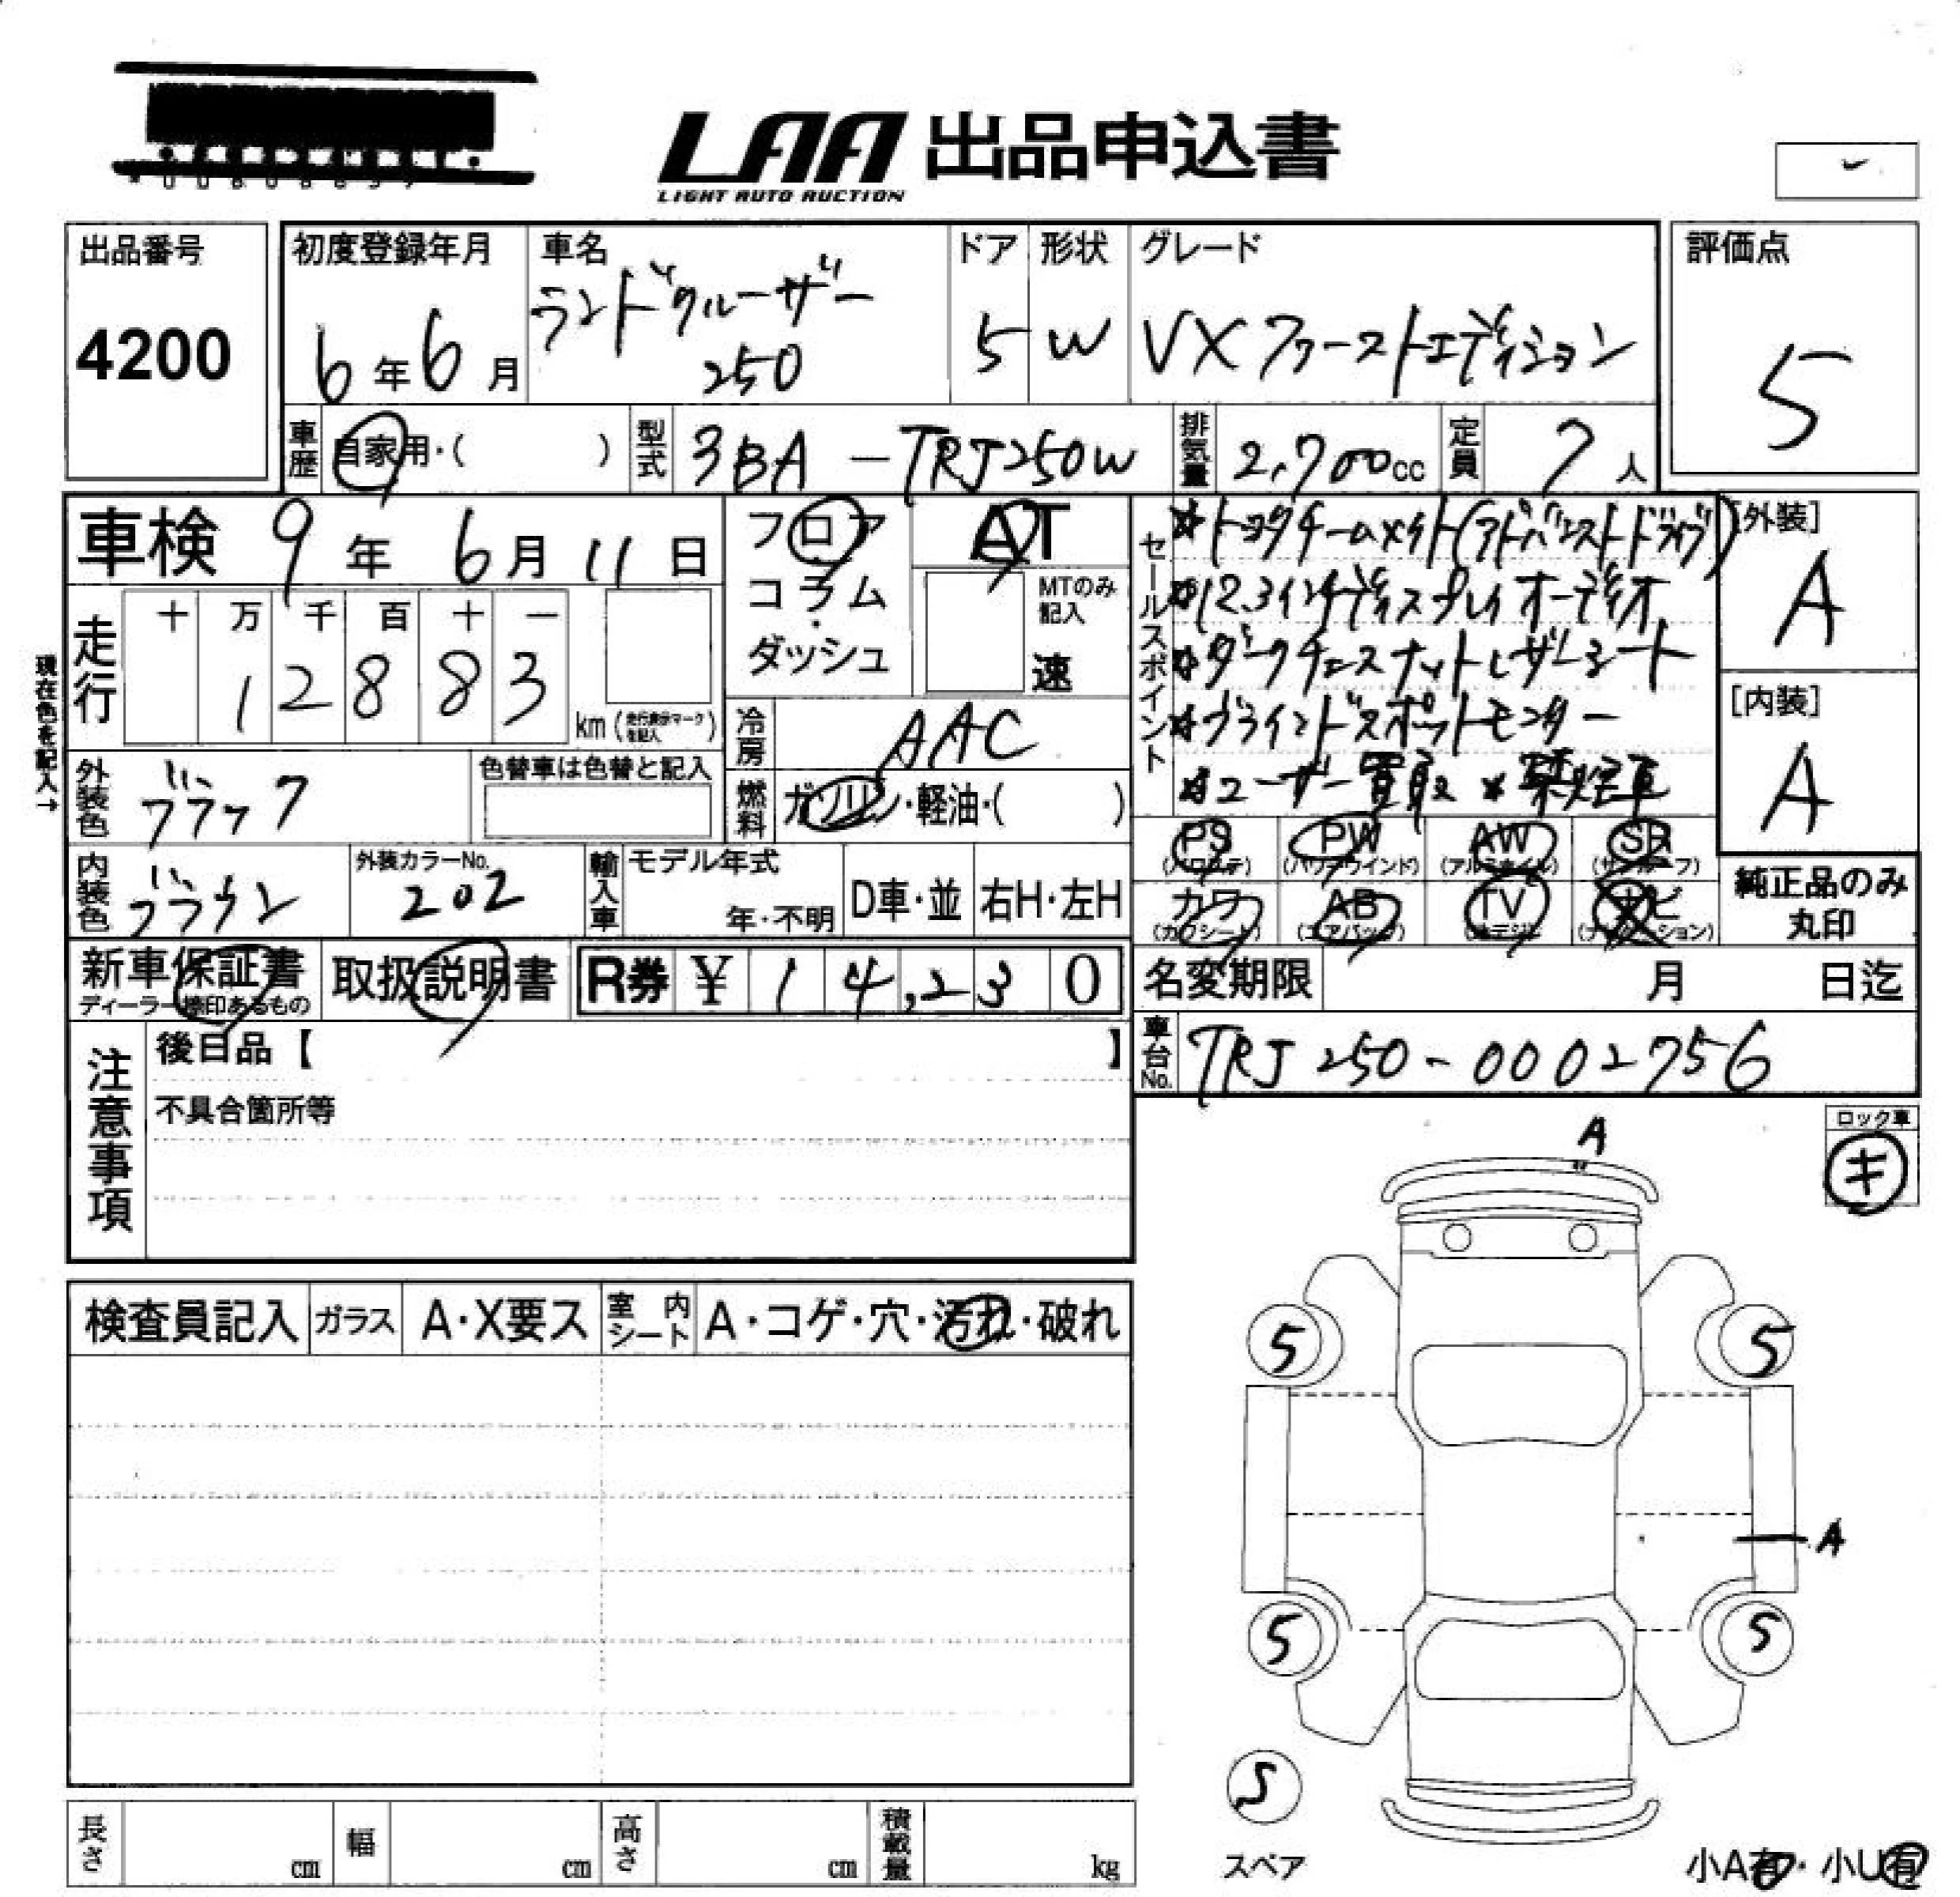 LAA 出品申込書
LIGHT AUTO AUCTION
出品番号
4200
初度登録年月
6年6月
車名
ランドクルーザー
250
ドア
5
形状
W
グレード
VXファーストエディション
評価点
5
車歴
自家用・( )
型式
3BA-TRJ250W
排気量
2,700cc
定員
7人
車検 9年6月11日
現在色を記入→
走行
十 万 千 百 十 一
1 2 8 8 3
km (走行表示マークを記入)
フロア
コラム
ダッシュ
AT
MTのみ
記入
速
冷房
AAC
燃料
ガソリン・軽油・( )
セールスポイント
☆トヨタチームメイト(アドバンストドライブ)
☆12.3インチディスプレイオーディオ
☆ダークチェスナットレザーシート
☆ブラインドスポットモニター
☆ユーザー買取☆禁煙車
[外装]
A
[内装]
A
外装色
ブラック
色替車は色替と記入
内装色
ブラウン
外装カラーNo.
202
輸入車
モデル年式
年・不明
D車・並
右H・左H
PS
(パワステ)
PW
(パワーウインド)
AW
(アルミホイル)
SR
(サンルーフ)
カワ
(カワシート)
AB
(エアバッグ)
TV
(地デジ)
ナビ
(ナビゲーション)
純正品のみ
丸印
新車保証書
ディーラー捺印あるもの
取扱説明書
R券 ¥ 1 4,2 3 0
名変期限
月 日迄
車台No.
TRJ250-0002756
注意事項
後日品【 】
不具合箇所等
ロック車
キ
検査員記入
ガラス
A・X要ス
室内シート
A・コゲ・穴・汚れ・破れ
A
5
5
A
5
5
5
スペア
小A有・小U有
長さ
cm
幅
cm
高さ
cm
積載量
kg